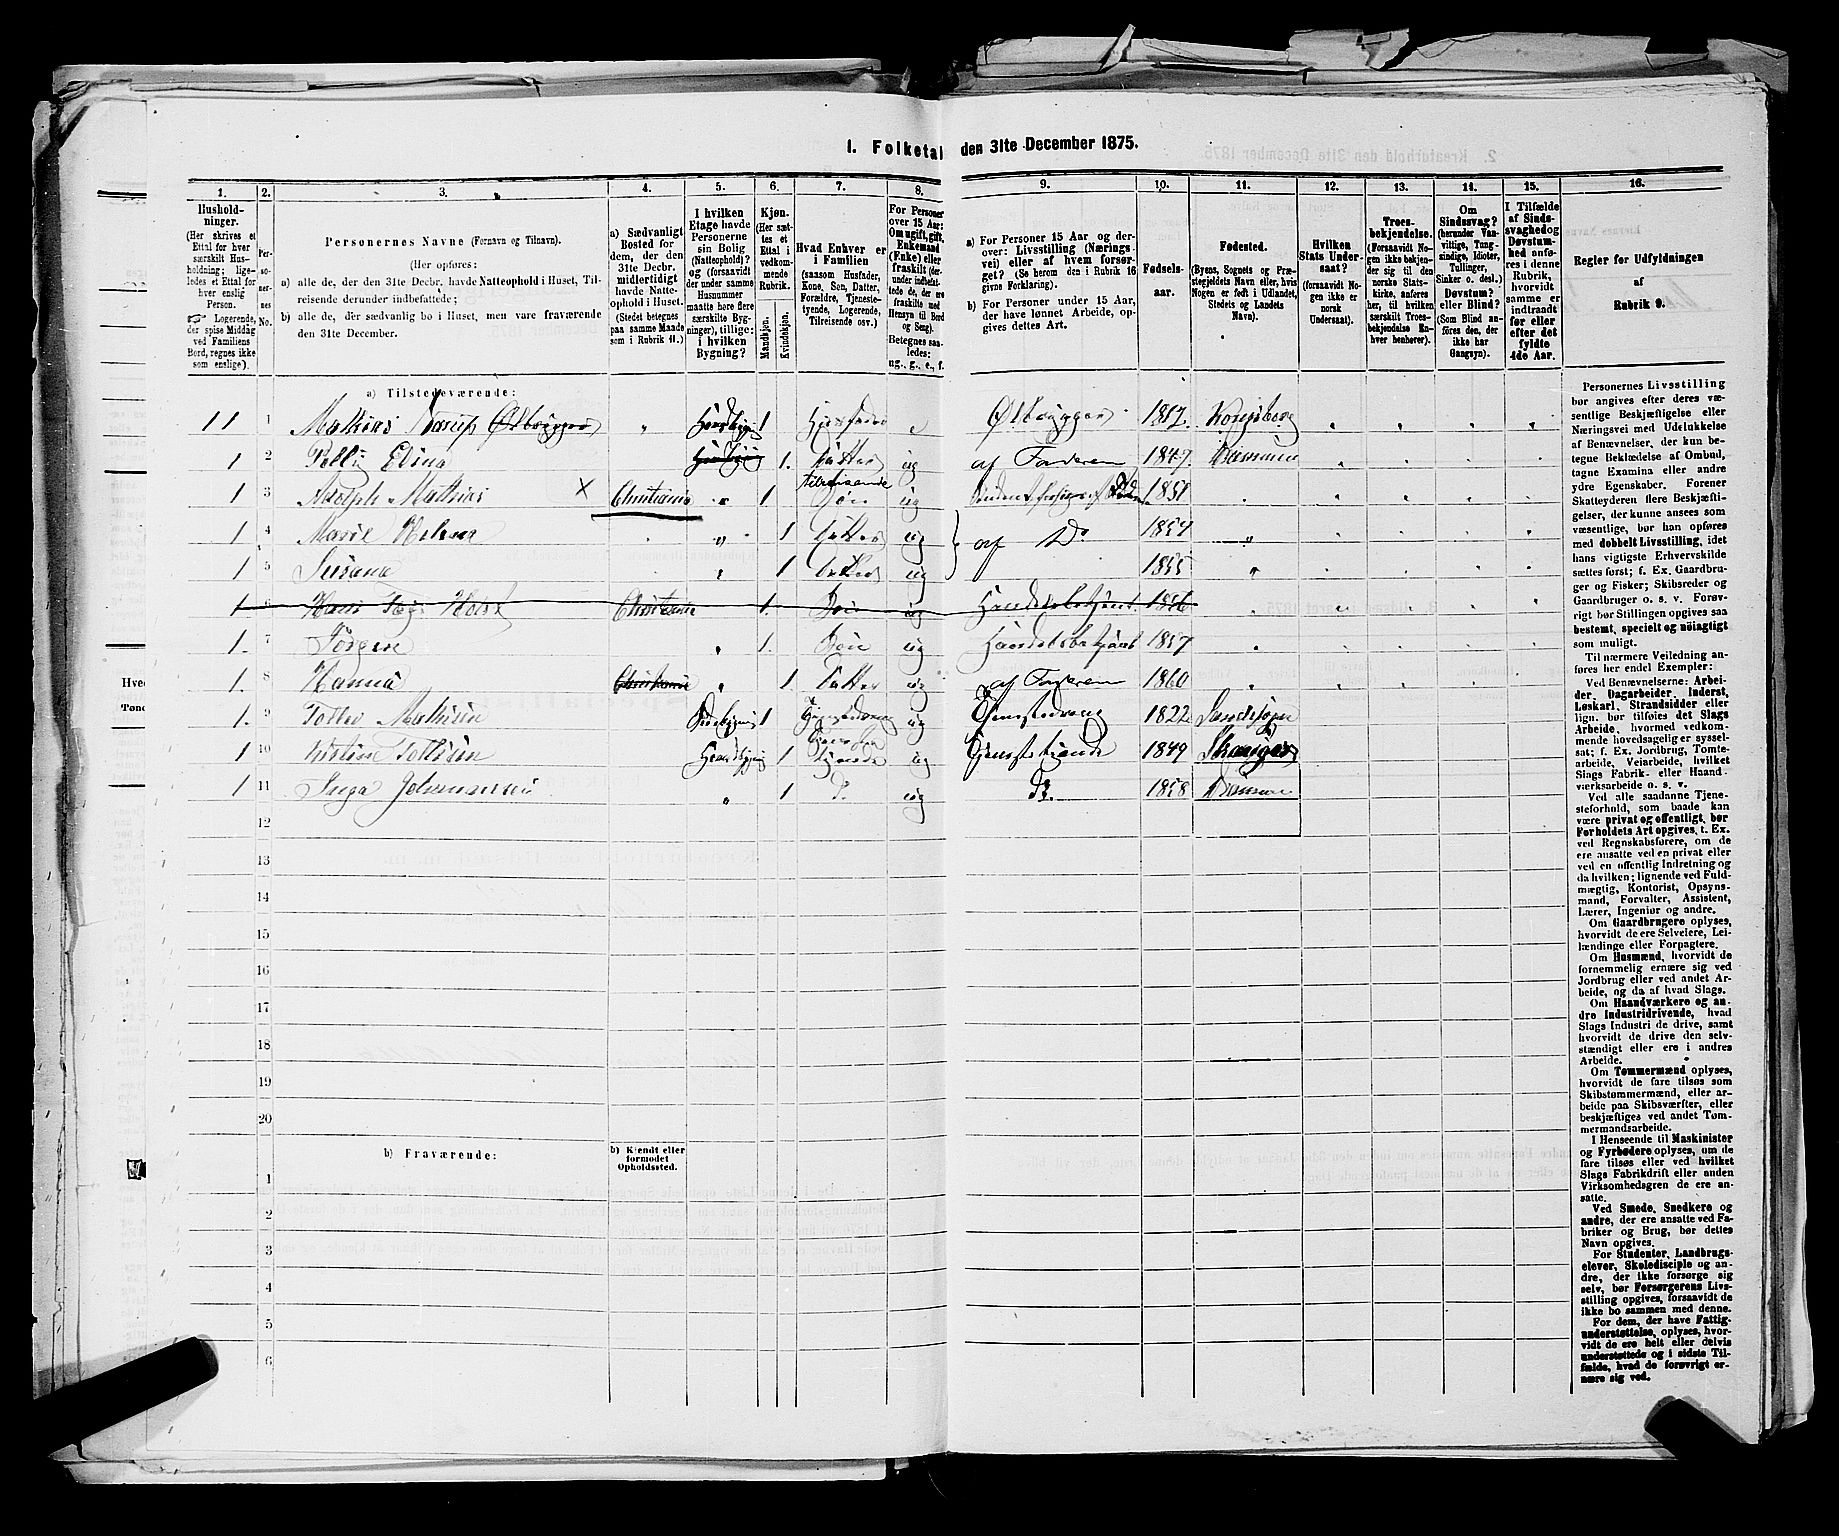 1. Folketal den 31te December 1875.
1. 2. 3. 4. 5. 6. 7. 8. 9. 10. 11. 12. 13. 14. 15. 16.
Hushold-
ninger.
(Her skrives et
Ettal for hver
særskilt Hus-
holdning; lige-
ledes et Ettal
for hver enslig
Person.
Logerende,
der spise Middag
ved Familiens
Bord, regnes ikke
som enslige).
Per-
so-
ner-
nes
No.
Personernes Navne (Fornavn og Tilnavn).
(Her opføres:
a) alle de, der den 31te Decbr. havde Natteophold i Huset, Til-
reisende derunder indbefattede;
b) alle de, der sædvanlig bo i Huset, men vare fraværende
den 31te December.
a) Sædvanligt
Bosted for
dem, der den
31te Decbr.
midlertidigt
havde Natte-
ophold i Huset.
(Stedet betegnes
paa samme Maade
som i Rubrik 11.)
I hvilken
Etage havde
Personerne
sin Bolig
(Natteophold)?
og (forsaavidt
der under samme
Husnummer
maatte høre flere
særskilte Byg-
ninger), tillige:
i hvilken
Bygning?
Kjøn.
(Her sæt-
tes et
Ettal i
vedkom-
mende
Rubrik.
Mandkjøn.
Kvindekjøn.
Hvad Enhver er
i Familien
(saasom Husfader,
Kone, Søn, Datter,
Forældre, Tjeneste-
tyende, Logerende,
Tilreisende osv.)
For Personer
over 15 Aar:
Om ugift, gift,
Enkemand
(Enke) eller
fraskilt (der-
under indbefat-
tede de, der ere
fraskilte med
Hensyn til Bord
og Seng).
Betegnes saa-
ledes:
ug., g., e., f.
a) For Personer 15 Aar og der-
over: Livsstilling (Nærings-
vei) eller af hvem forsør-
get? (Se herom den i Rubrik 16
givne Forklaring).
b) For Personer under 15 Aar,
der have lønnet Arbeide, op-
gives dettes Art.
Fødsels-
aar.
Fødested.
(Byens, Sognets og Præ-
stegjeldets Navn eller, hvis
Nogen er født i Udlandet,
Stedets og Landets
Navn).
Hvilken
Stats Under-
saat?
(forsaavidt No-
gen ikke er
norsk
Undersaat).
Troes-
bekjendelse.
(Forsaavidt No-
gen ikke bekjen-
der sig til den
norske Stats-
kirke, anføres
her, til hvilken
særskilt Troes-
bekjendelse En-
hver henhører).
Om
Sindssvag?
(herunder Van-
vittige, Tung-
sindige, Idioter,
Tullinger,
Sinker o. desl.)
Døvstum?
eller Blind?
(Som Blind an-
føres den, der
ikke har
Gangsyn).
I Tilfælde
af Sinds-
svaghed og
Døvstum-
hed anfø-
res i denne
Rubrik,
hvorvidt
samme er
indtraadt
før eller
efter det
fyldte
4de Aar.
Regler for Udfyldningen
af
Rubrik 9.
a) Tilstedeværende:
1 1 1 Mathias Ølbrygger 1 e Ølbrygger 1812 Kongsberg
1 2 Elina 1 Datter ug af Faderen 1847 Drammen
1 3 Adolph Mathias X Christiania 1 tilreisende Søn ug 1851
1 4 Marie Helene 1 Datter ug af Do 1854
1 5 Susana 1 Datter ug 1855
1 6 Hans Christiania 1 Søn ug Handelsbetjent 1856
1 7 Jørgen 1 Søn ug Handelsbetjent 1857
1 8 Hanna Christiania 1 Datter ug af Faderen 1860
1 9 Mathisen Sidebygning 1 Tjenestedreng ug Tjenestedreng 1822
1 10 1 ug Tjenestetyende 1849
1 11 Inga Johannesen 1 D. ug Do 1858 Drammen
12
13
14
15
16
17
18
19
20
b) Fraværende:
b) Kjendt eller
formodet
Opholdssted.
1
2
3
4
5
6
Personernes Livsstilling
bør angives efter deres væ-
sentlige Beskjæftigelse eller
Næringsvei med Udelukkelse
af Benævnelser, der kun be-
tegne Beklædelse af Ombud,
tagne Examina eller andre
ydre Egenskaber. Forener
Skatteyderen flere Beskjæfti-
gelser, der kunne ansees som
væsentlige, bør han opføres
med dobbelt Livsstilling, idet
hans vigtigste Erhvervskilde
sættes først; f. Ex. Gaardbru-
ger og Fisker; Skibsreder og
Gaardbruger o. s. v. Forøv-
rigt bør Stillingen opgives saa
bestemt, specielt og nøiagtigt
som muligt.
Til nærmere Veiledning an-
føres her endel Exempler:
Ved Benævnelserne: Arbei-
der, Dagarbeider, Inderst,
Løskarl, Strandsidder eller
lign. bør tilføies det Slags
Arbeide, hvormed vedkom-
mende hovedsagelig er syssel-
sat; f. Ex. Jordbrug, Tomte-
arbeide, Veiarbeide, hvilket
Slags Fabrik- eller Haand-
værksarbeide o. s. v.
Ved alle saadanne Tjene-
steforhold, som baade kan
være privat og offentligt, bør
Forholdets Art opgives, t. Ex.
ved Regnskabsførere, om de
ere ansatte ved en privat eller
ved en offentlig Indretning og
da hvilken; lignende ved Fuld-
mægtig, Kontorist, Opsyns-
mand, Forvalter, Assistent,
Lærer, Ingeniør og andre.
Om Gaardbrugere oplyses,
hvorvidt de ere Selveiere, Lei-
lændinge eller Forpagtere.
Om Husmænd, hvorvidt de
fornemmelig ernære sig ved
Jordbrug eller ved andet Ar-
beide, og da af hvad Slags.
Om Haandværkere og an-
dre Industridrivende, hvad
Slags Industri de drive, samt
hvorvidt de drive den selv-
stændigt eller ere i andres
Arbeide.
Om Tømmermænd oplyses,
hvorvidt de fare tilsøs som
Skibstømmermænd, eller ar-
beide paa Skibsværfter, eller
beskjæftiges ved andet Tøm-
mermandsarbeide.
I Henseende til Maskinister
og Fyrbødere oplyses, om de
fare tilsøs eller ved hvilket
Slags Fabrikdrift eller anden
Virksomhedsgren de ere an-
satte.
Ved Smede, Snedkere og
andre, der ere ansatte ved Fa-
briker og Brug, bør dettes
Navn opgives.
For Studenter, Landbrugs-
elever, Skoledisciple og an-
dre, der ikke forsørge sig
selv, bør Forsørgerens Livs-
stilling opgives, forsaavidt de
ikke bo sammen med denne.
For dem, der have Fattig-
understøttelse, oplyses, hvor-
vidt de ere helt eller delvis
understøttede og i sidste Til-
fælde, hvad de forøvrigt er-
nære sig ved.